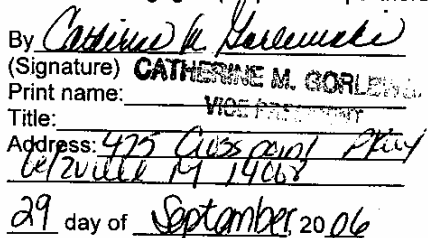 By Catherine M Gorlewski
(Signature) CATHERINE M. GORLEWS
Print name:
VICE PRESIDENT
Title:
Address: 475 Crosspoint Pkwy
Getzville NY 14068
29 day of September, 2006